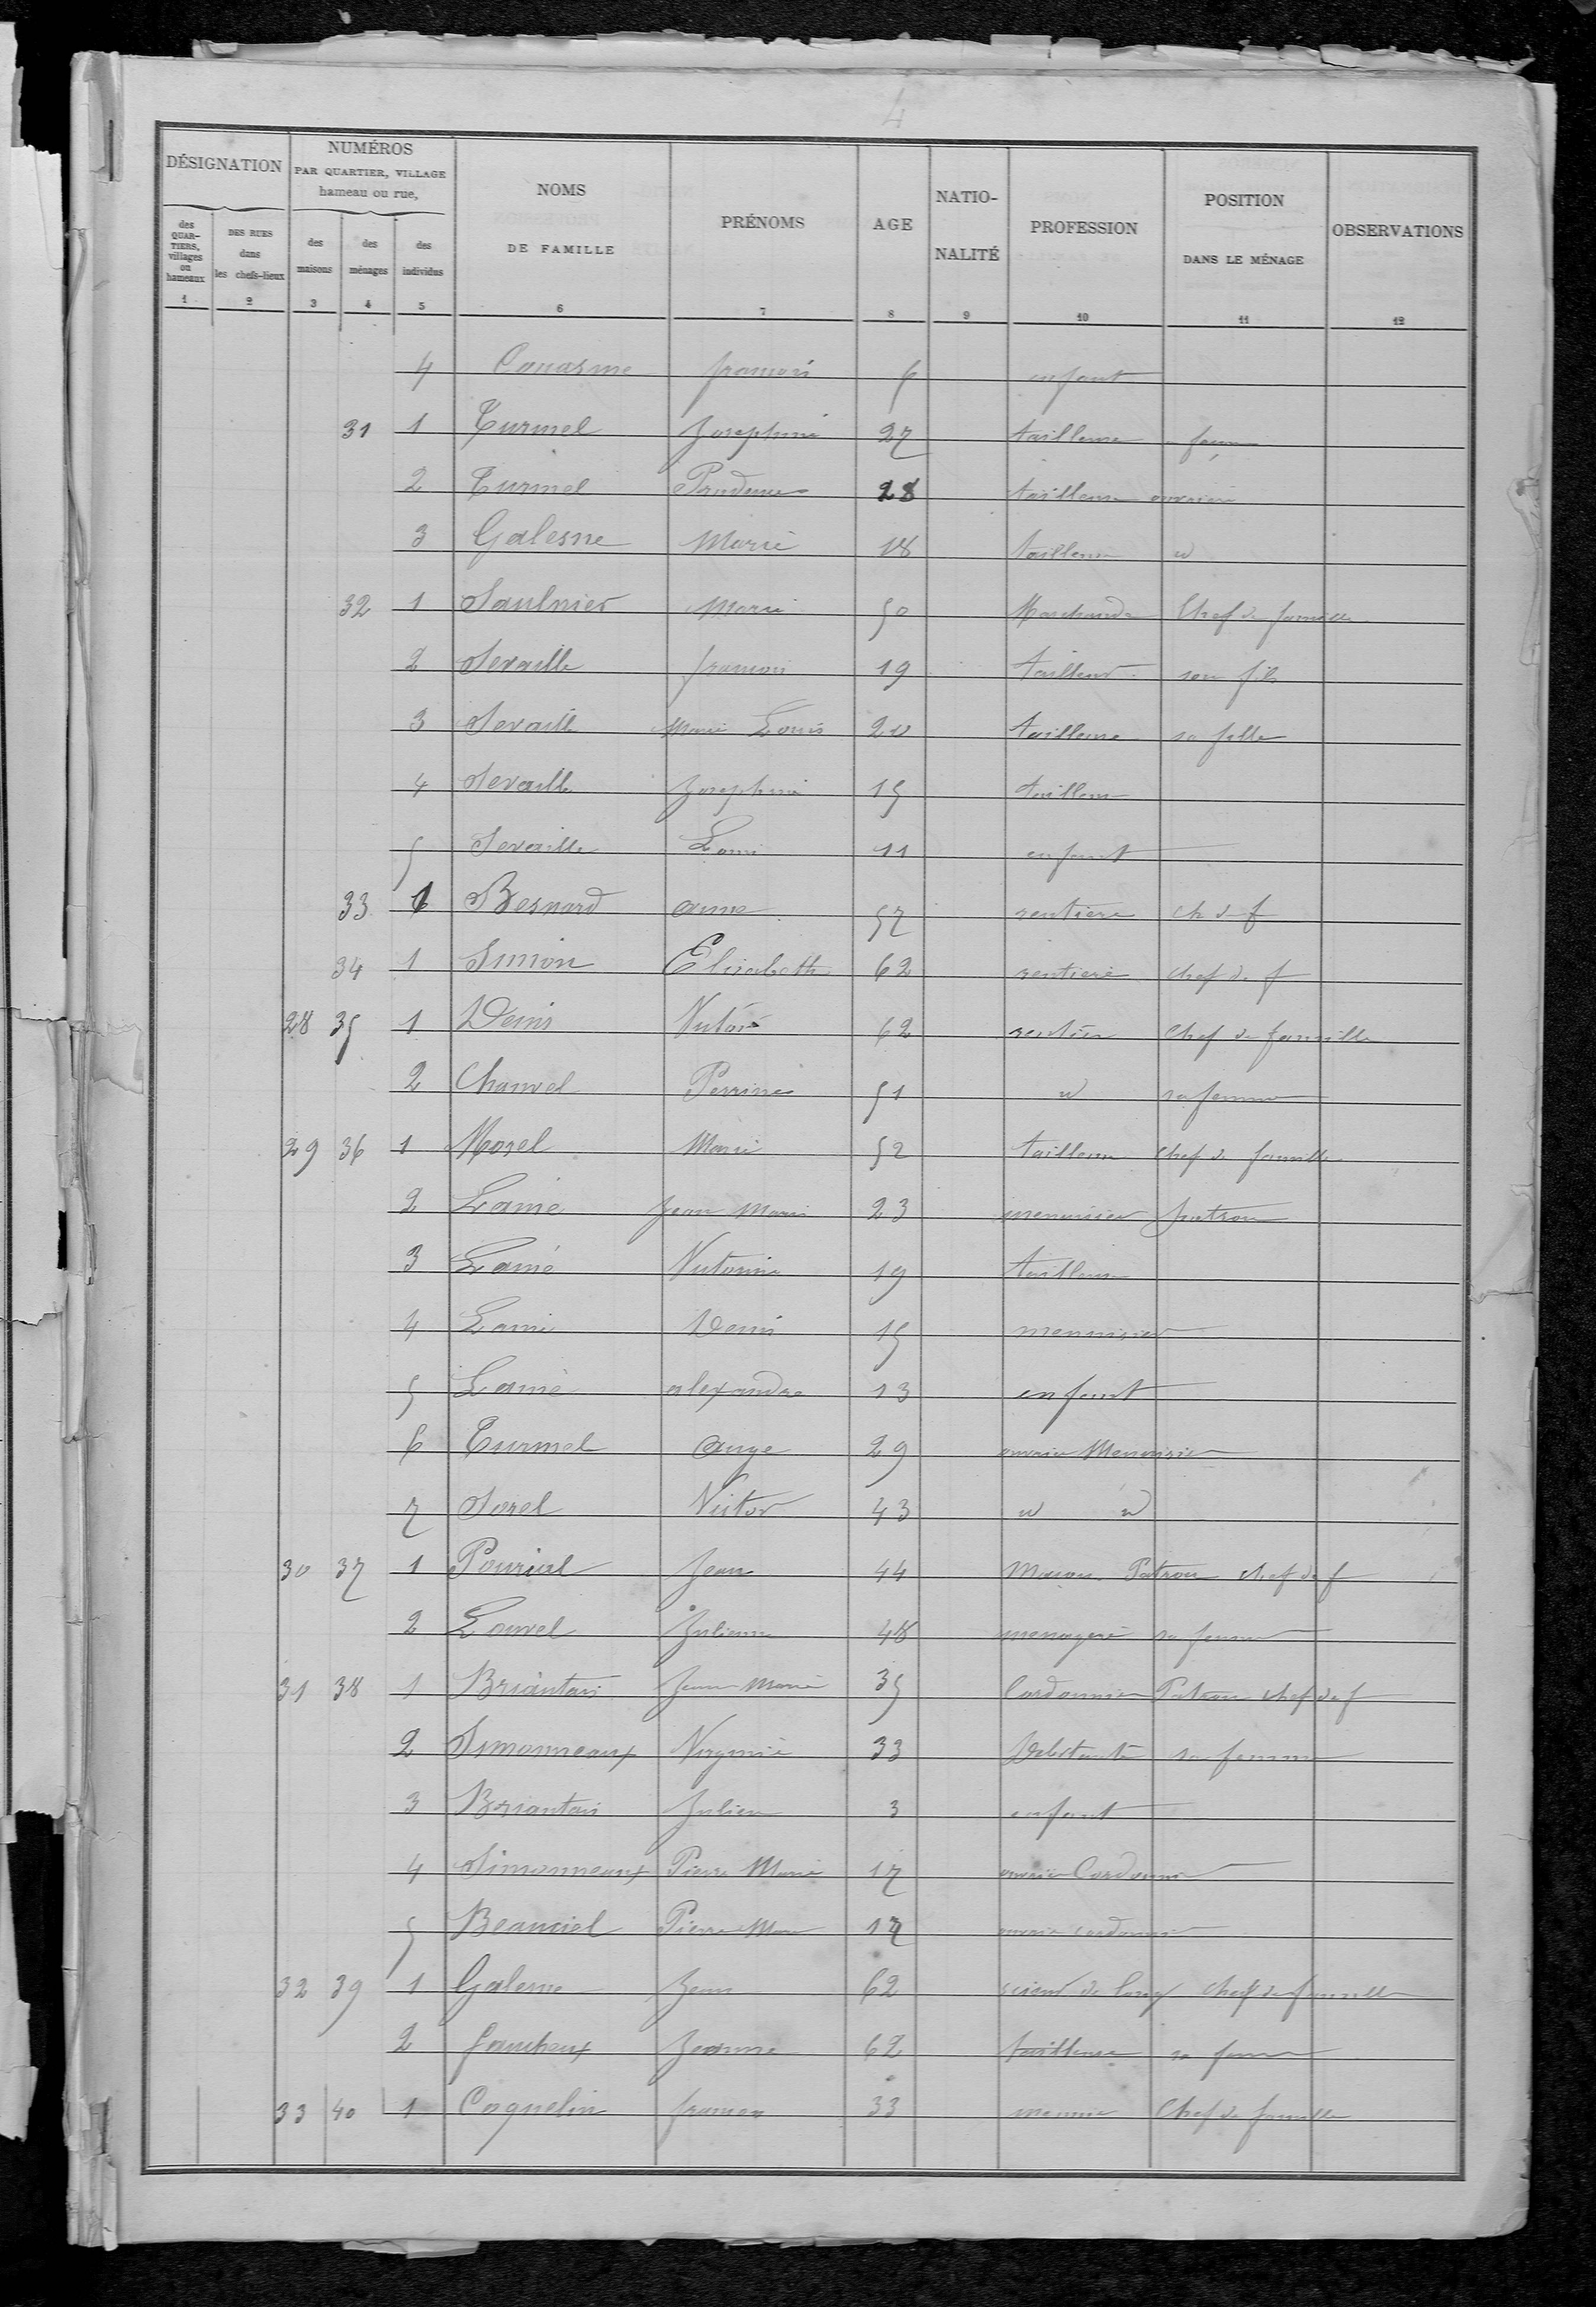 4
DÉSIGNATION
NUMÉROS
PAR QUARTIER, VILLAGE
hameau ou rue,
des QUARTIERS, villages ou hameaux
DES RUES dans les chefs-lieux
des maisons
des ménages
des individus
NOMS DE FAMILLE
PRÉNOMS
AGE
NATIONALITÉ
PROFESSION
POSITION DANS LE MÉNAGE
OBSERVATIONS
1 2 3 4 5 6 7 8 9 10 11 12
4 Couasme françois 6 enfant
31 1 Turmel Josephine 27 tailleuse
2 Turmel Prudence 28 tailleuse ouvriere
3 Galesne Marie 18 tailleuse d
32 1 Saulnier Marie 50 Marchande Chef de famille
2 Sevaille françois 19 tailleur son fils
3 Sevaille Marie Louis 20 tailleuse sa fille
4 Sevaille Josephine 15 tailleuse
5 Sevaille Louis 11 enfant
33 1 Besnard anne 57 rentiere ch de f
34 1 Simon Elisabeth 62 rentiere chef de f
28 35 1 Denis Victor 62 rentier chef de famille
2 Chauvel Perrine 51 d sa femme
29 36 1 Morel Marie 52 tailleuse chef de famille
2 Lainé Jean Marie 23 menuisier patron
3 Lainé Victorine 19 tailleuse
4 Lainé Denis 15 menuisier
5 Lainé alexandre 13 enfant
6 Turmel ange 29 ouvrier Menuisier
7 Sorel Victor 43 d d
30 37 1 Pourial Jean 44 Maçon Patron chef de f
2 Louvel Julienne 48 menagere sa femme
31 38 1 Briantais Jean Marie 35 Cordonnier Patron chef de f
2 Simonneaux Virginie 33 Debitante sa femme
3 Briantais Julien 3 enfant
4 Simonneaux Pierre Marie 17 ouvrier Cordonnier
5 Beauciel Pierre Marie 17 ouvrier cordonnier
32 39 1 Galesne Jean 62 scieur de long chef de famille
2 faucheux Jeanne 62 tailleuse sa femme
33 40 1 Coquelin françois 33 Chef de famille